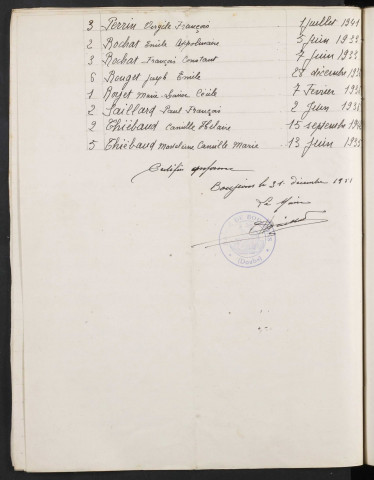 3 Perrin Virgile François 1 Juillet 1941
2 Rochat Emile Appolinaire 5 Juin 1933
3 Rochat François Constant 7 Juin 1933
6 Rouget Joseph Emile 28 décembre
1 Roget Marie Louise Cécile 7 Février 1938
2 Saillard Paul François 2 Juin 1938
2 Thiébaud Camille Hilaire 15 septembre
5 Thiébaud Madeleine Camille Marie 13 Juin 1935
Certifié conforme
le 31 décembre
Le Maire
(Doubs)